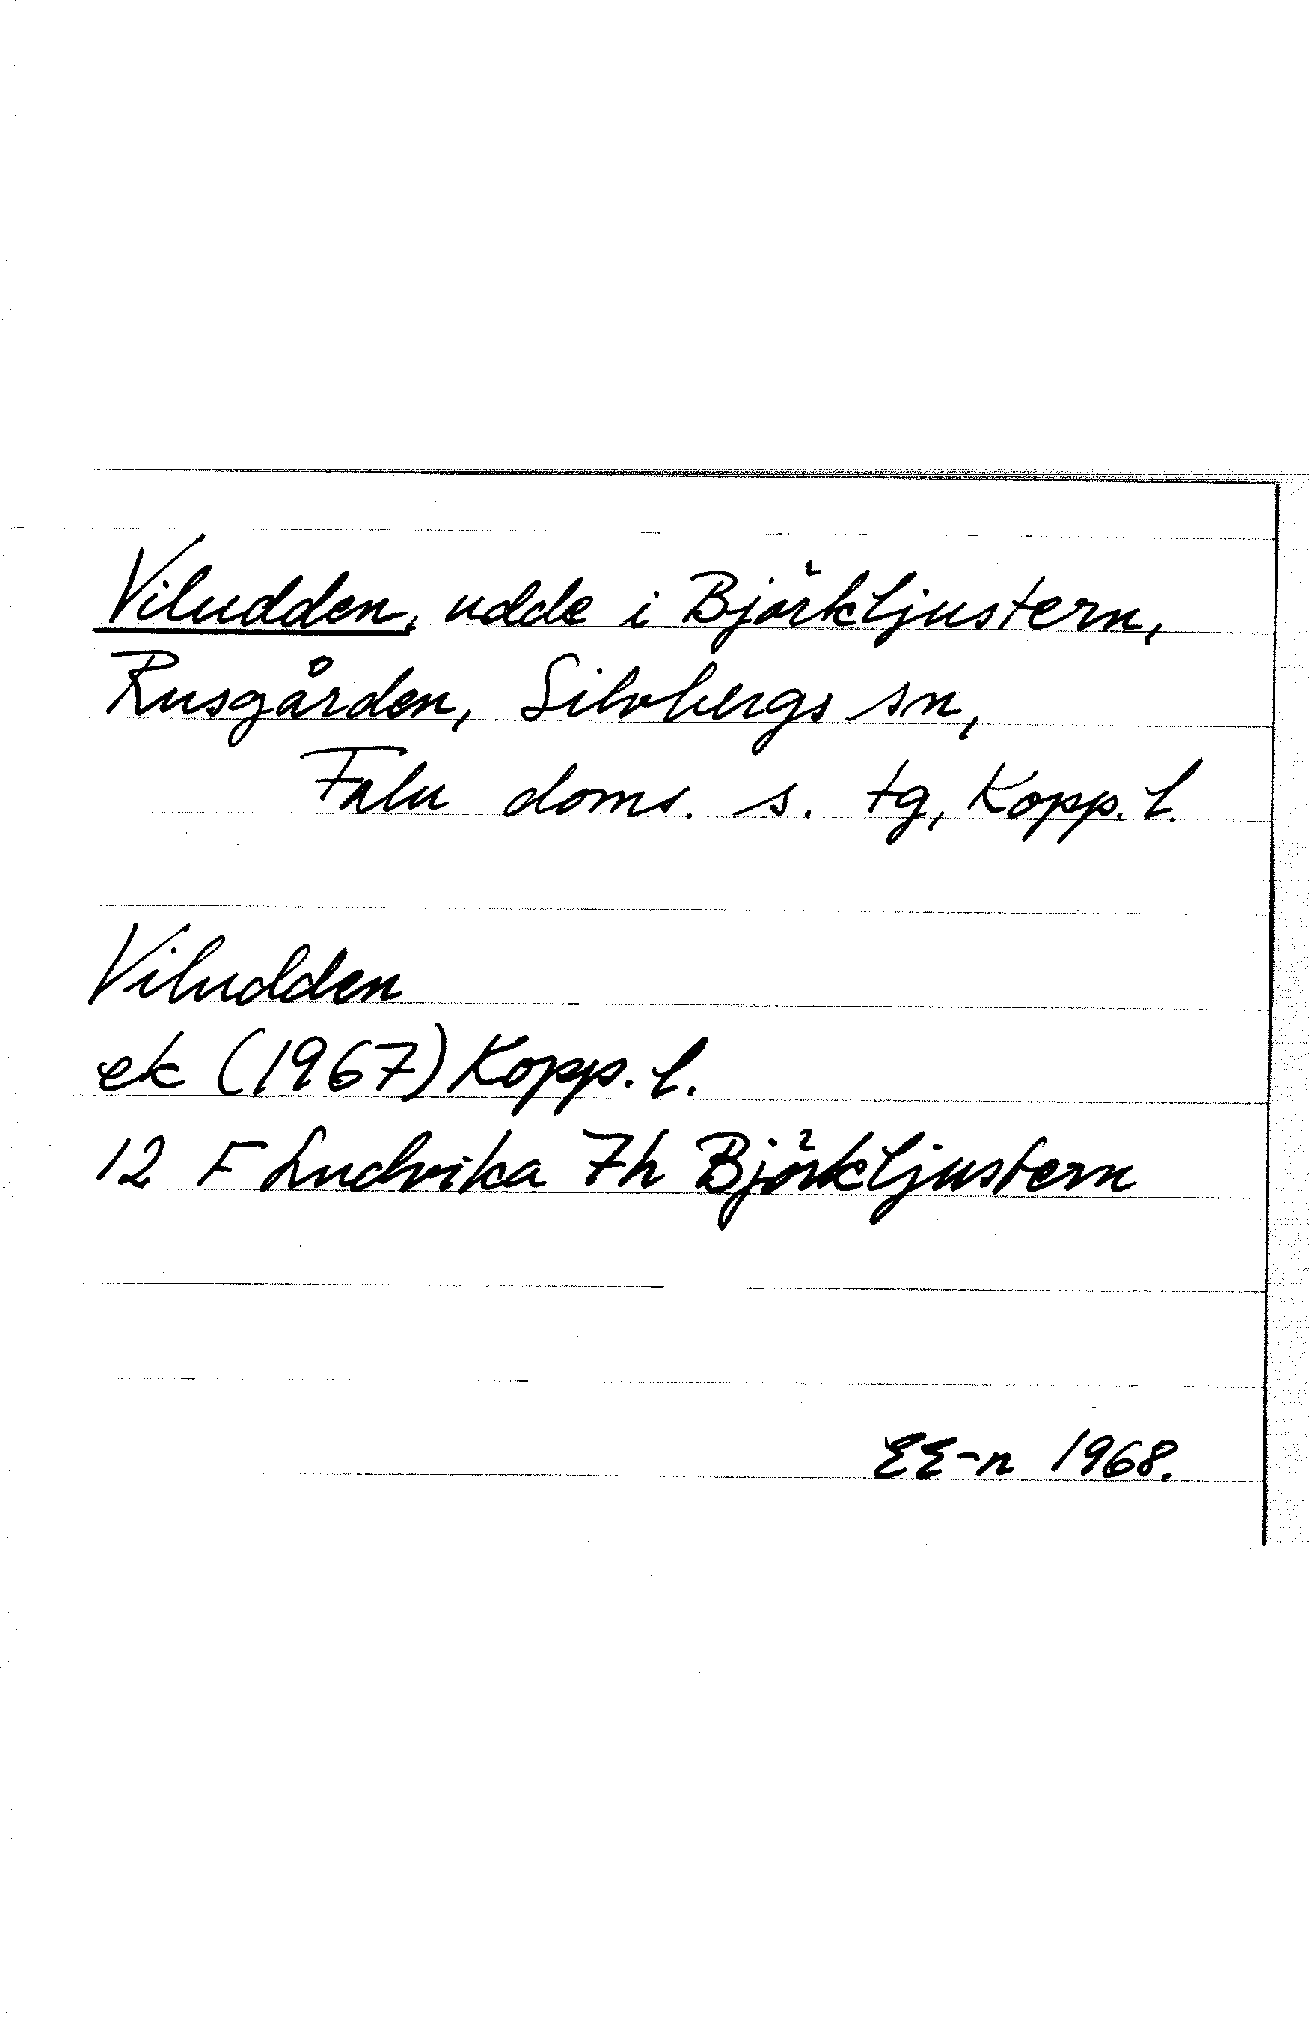 Viludden, udde i Björkljustern,
Rusgården, Silvbergs sn,
Falu doms. s. tg, Kopp. l.
Viludden
ek (1967) Kopp. l.
12 F Ludvika 7h Björkljustern
EE-n 1968.